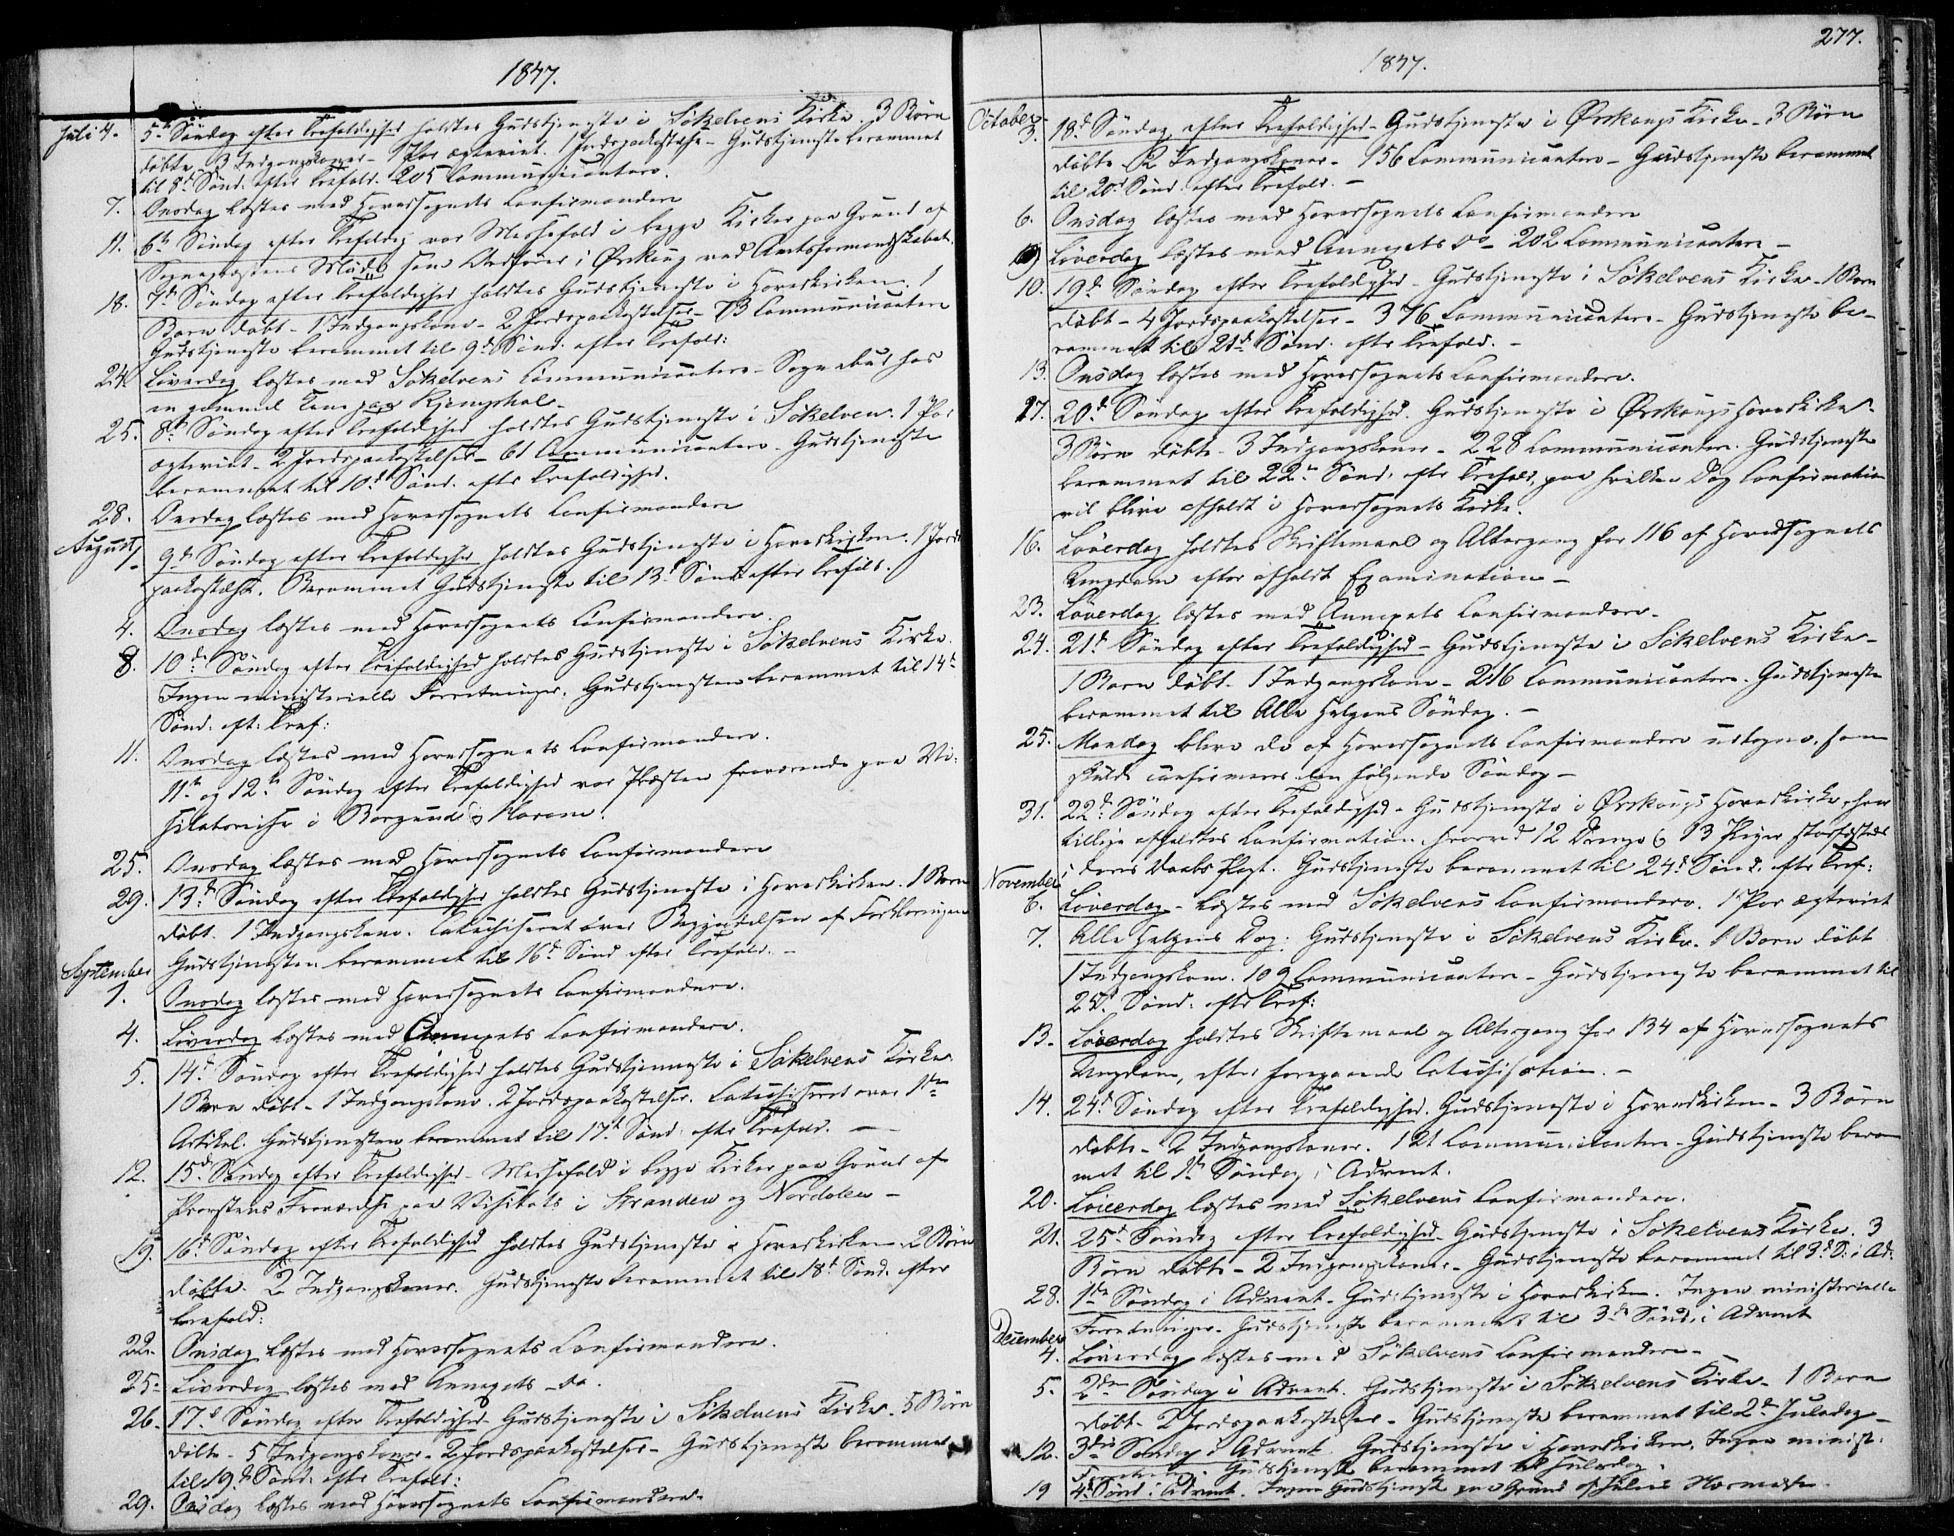 1847.
Juli 4. 5te Søndag efter Trefoldighed holdtes Gudstjeneste i Søkelvens Kirke. 3 Børn
døbte. 3 Indgangskoner. 1 Par ægteviet. 1 Jordpaakastelse. Gudstjeneste berammet
til 8de Sønd. efter Trefold. 205 Communicantere.
7. Onsdag læstes med Hovedsognets Confirmander
11. 6te Søndag efter Trefoldig. var Messefald i begge Kirker paa Grund af
Sognepræstens Møde som Ordfører i Ørskoug ved Amtsformandskabet.
18. 7de Søndag efter Trefoldighed holdtes Gudstjeneste i Hovedkirken. 1
Barn døbt – 1 Indgangskone – 2 Jordpaakastelser – 73 Communicantere
Gudstjeneste berammet til 9de Sønd. efter Trefold:
24. Løverdag læstes med Søkelvens Communicantere – Sognebud hos
en gammel Kone paa
25. 8de Søndag efter Trefoldighed holdtes Gudstjeneste i Søkelven. 1 Par
ægteviet – 2 Jordpaakastelser – 61 Communicantere. Gudstjeneste
berammet til 10de Sønd. efter Trefoldighed.
28. Onsdag læstes med Hovedsognets Confirmander
August 1. 9de Søndag efter Trefoldighed holdtes Gudstjeneste i Hovedkirken. 1 Jord-
paakastelse. Berammet Gudstjeneste til 13de Sønd. efter Trefold.
4. Onsdag læstes med Hovedsognets Confirmander.
8. 10de Søndag efter Trefoldighed holdtes Gudstjeneste i Søkelvens Kirke.
Ingen ministerielle Forretninger. Gudstjenesten berammet til 14de
Sønd. eft: Tref:
11. Onsdag læstes med Hovedsognets Confirmander.
11te og 12te Søndag efter Trefoldighed var Præsten fraværende paa Vi-
sitatsreise i Borgund og Haram.
25. Onsdag læstes med Hovedsognets Confirmander
29. 13de Søndag efter Trefoldighed holdtes Gudstjeneste i Hovedkirken. 1 Barn
døbt. 1 Indgangskone. Catechiseret over Begyndelsen af Forklaringen
Gudstjenesten berammet til 16de Sønd efter Trefold. –
September
1. Onsdag læstes med Hovedsognets Confirmander.
4. Løverdag læstes med Annexets Confirmander.
5. 14de Søndag efter Trefoldighed holdtes Gudstjeneste i Søkelvens Kirke.
1 Barn døbt – 1 Indgangskone. 2 Jordpaakastelser. Catechiseret over 1ste
Artikel. Gudstjenesten berammet til 17de Sønd. efter Trefold. –
12. 15de Søndag efter Trefoldighed – Messefald i begge Kirker paa Grund af
Provstens Fraværelse paa Visitats i Stranden og Nordalen –
19. 16de Søndag efter Trefoldighed holdtes Gudstjeneste i Hovedkirken. 2 Børn
døbte. 2 Indgangskoner. Gudstjeneste berammet til 18de Sønd. efter
Trefold:
22. Onsdag læstes med Hovedsognets Confirmander.
25. Løverdag læstes med Annexets – do.
26. 17de Søndag efter Trefoldighed Gudstjeneste i Søkelvens Kirke. 5 Børn
døbte – 5 Indgangskoner – 2 Jordpaakastelser – Gudstjeneste berammet
til 19de Sønd. efter Trefold:
29. Onsdag læstes med Hovedsognets Confirmander.
277.
1847.
October
3. 18de Søndag efter Trefoldighed – Gudstjeneste i Ørskougs Kirke – 3 Børn
døbte – 2 Indgangskoner – 156 Communicantere – Gudstjeneste berammet
til 20de Sønd. efter Trefold. –
6. Onsdag læstes med Hovedsognets Confirmander
9. Løverdag læstes med Annexets do – 202 Communicantere –
10. 19de Søndag efter Trefoldighed – Gudstjeneste i Søkelvens Kirke – 1 Barn
døbt – 4 Jordpaakastelser – 376 Communicantere – Gudstjeneste be-
rammet til 21de Sønd. efter Trefold. –
13. Onsdag læstes med Hovedsognets Confirmander.
17. 20de Søndag efter Trefoldighed. Gudstjeneste i Ørskougs Hovedkirke.
3 Børn døbte – 3 Indgangskoner – 228 Communicantere. Gudstjeneste
berammet til 22de Sønd. efter Trefold. paa hvilken Dag Confirmation
vil blive afholdt i Hovedsognets Kirke.
16. Løverdag holdtes Skriftemaal og Altergang for 116 af Hovedsognets
Ungdom efter afholdt Examination –
23. Løverdag læstes med Annexets Confirmander –
24. 21de Søndag efter Trefoldighed – Gudstjeneste i Søkelvens Kirke –
1 Barn døbt – 1 Indgangskone – 216 Communicantere. Gudstjeneste
berammet til Alle Helgens Søndag. –
25. Mandag bleve de af Hovedsognets Confirmander udtagne, som
skulde confirmeres den følgende Søndag –
31. 22de Søndag efter Trefoldighed – Gudstjeneste i Ørskougs Hovedkirke, hvor
tillige afholdtes Confirmation, hvorved 12 Drenge & 13 Piger stadfæstedes
i deres Daabs Pagt. Gudstjeneste berammet til 24de Sønd. efter Tref:
November
6. Løverdag – læstes med Søkelvens Confirmander. 1 Par ægteviet
7. Alle Helgens Dag: Gudstjeneste i Søkelvens Kirke. 1 Barn døbt
1 Indgangskone. 109 Communicantere – Gudstjeneste berammet til
25de Sønd. efter Tref:
13. Løverdag holdtes Skriftemaal og Altergang for 134 af Hovedsognets
Ungdom, efter foregaaende Catechisation. –
14. 24de Søndag efter Trefoldighed. Gudstjeneste i Hovedkirken – 3 Børn
døbte – 2 Indgangskoner. 121 Communicantere – Gudstjeneste beram
met til 1ste Søndag i Advent.
20. Løverdag læstes med Søkelvens Confirmander.
21. 25de Søndag efter Trefoldighed – Gudstjeneste i Søkelvens Kirke. 3
Børn døbte – 2 Indgangskoner – Gudstjeneste berammet til S. i Ad.
28. 1ste Søndag i Advent. Gudstjeneste i Hovedkirken. Ingen ministerielle
Forretninger. Gudstjeneste berammet til 3de Sønd. i Advent
December
4. Løverdag læstes med Søkelvens Confirmander –
5. 2den Søndag i Advent. Gudstjeneste i Søkelvens Kirke – 1 Barn
døbt – 2 Jordpaakastelser – Gudstjeneste berammet til 2den Juledag –
12. 3die Søndag i Advent. Gudstjeneste i Hovedkirken. Ingen minist.
Gudstjeneste berammet til Juledag.
19 4de Sønd. i Advent. Ingen Gudstjeneste paa Grund af